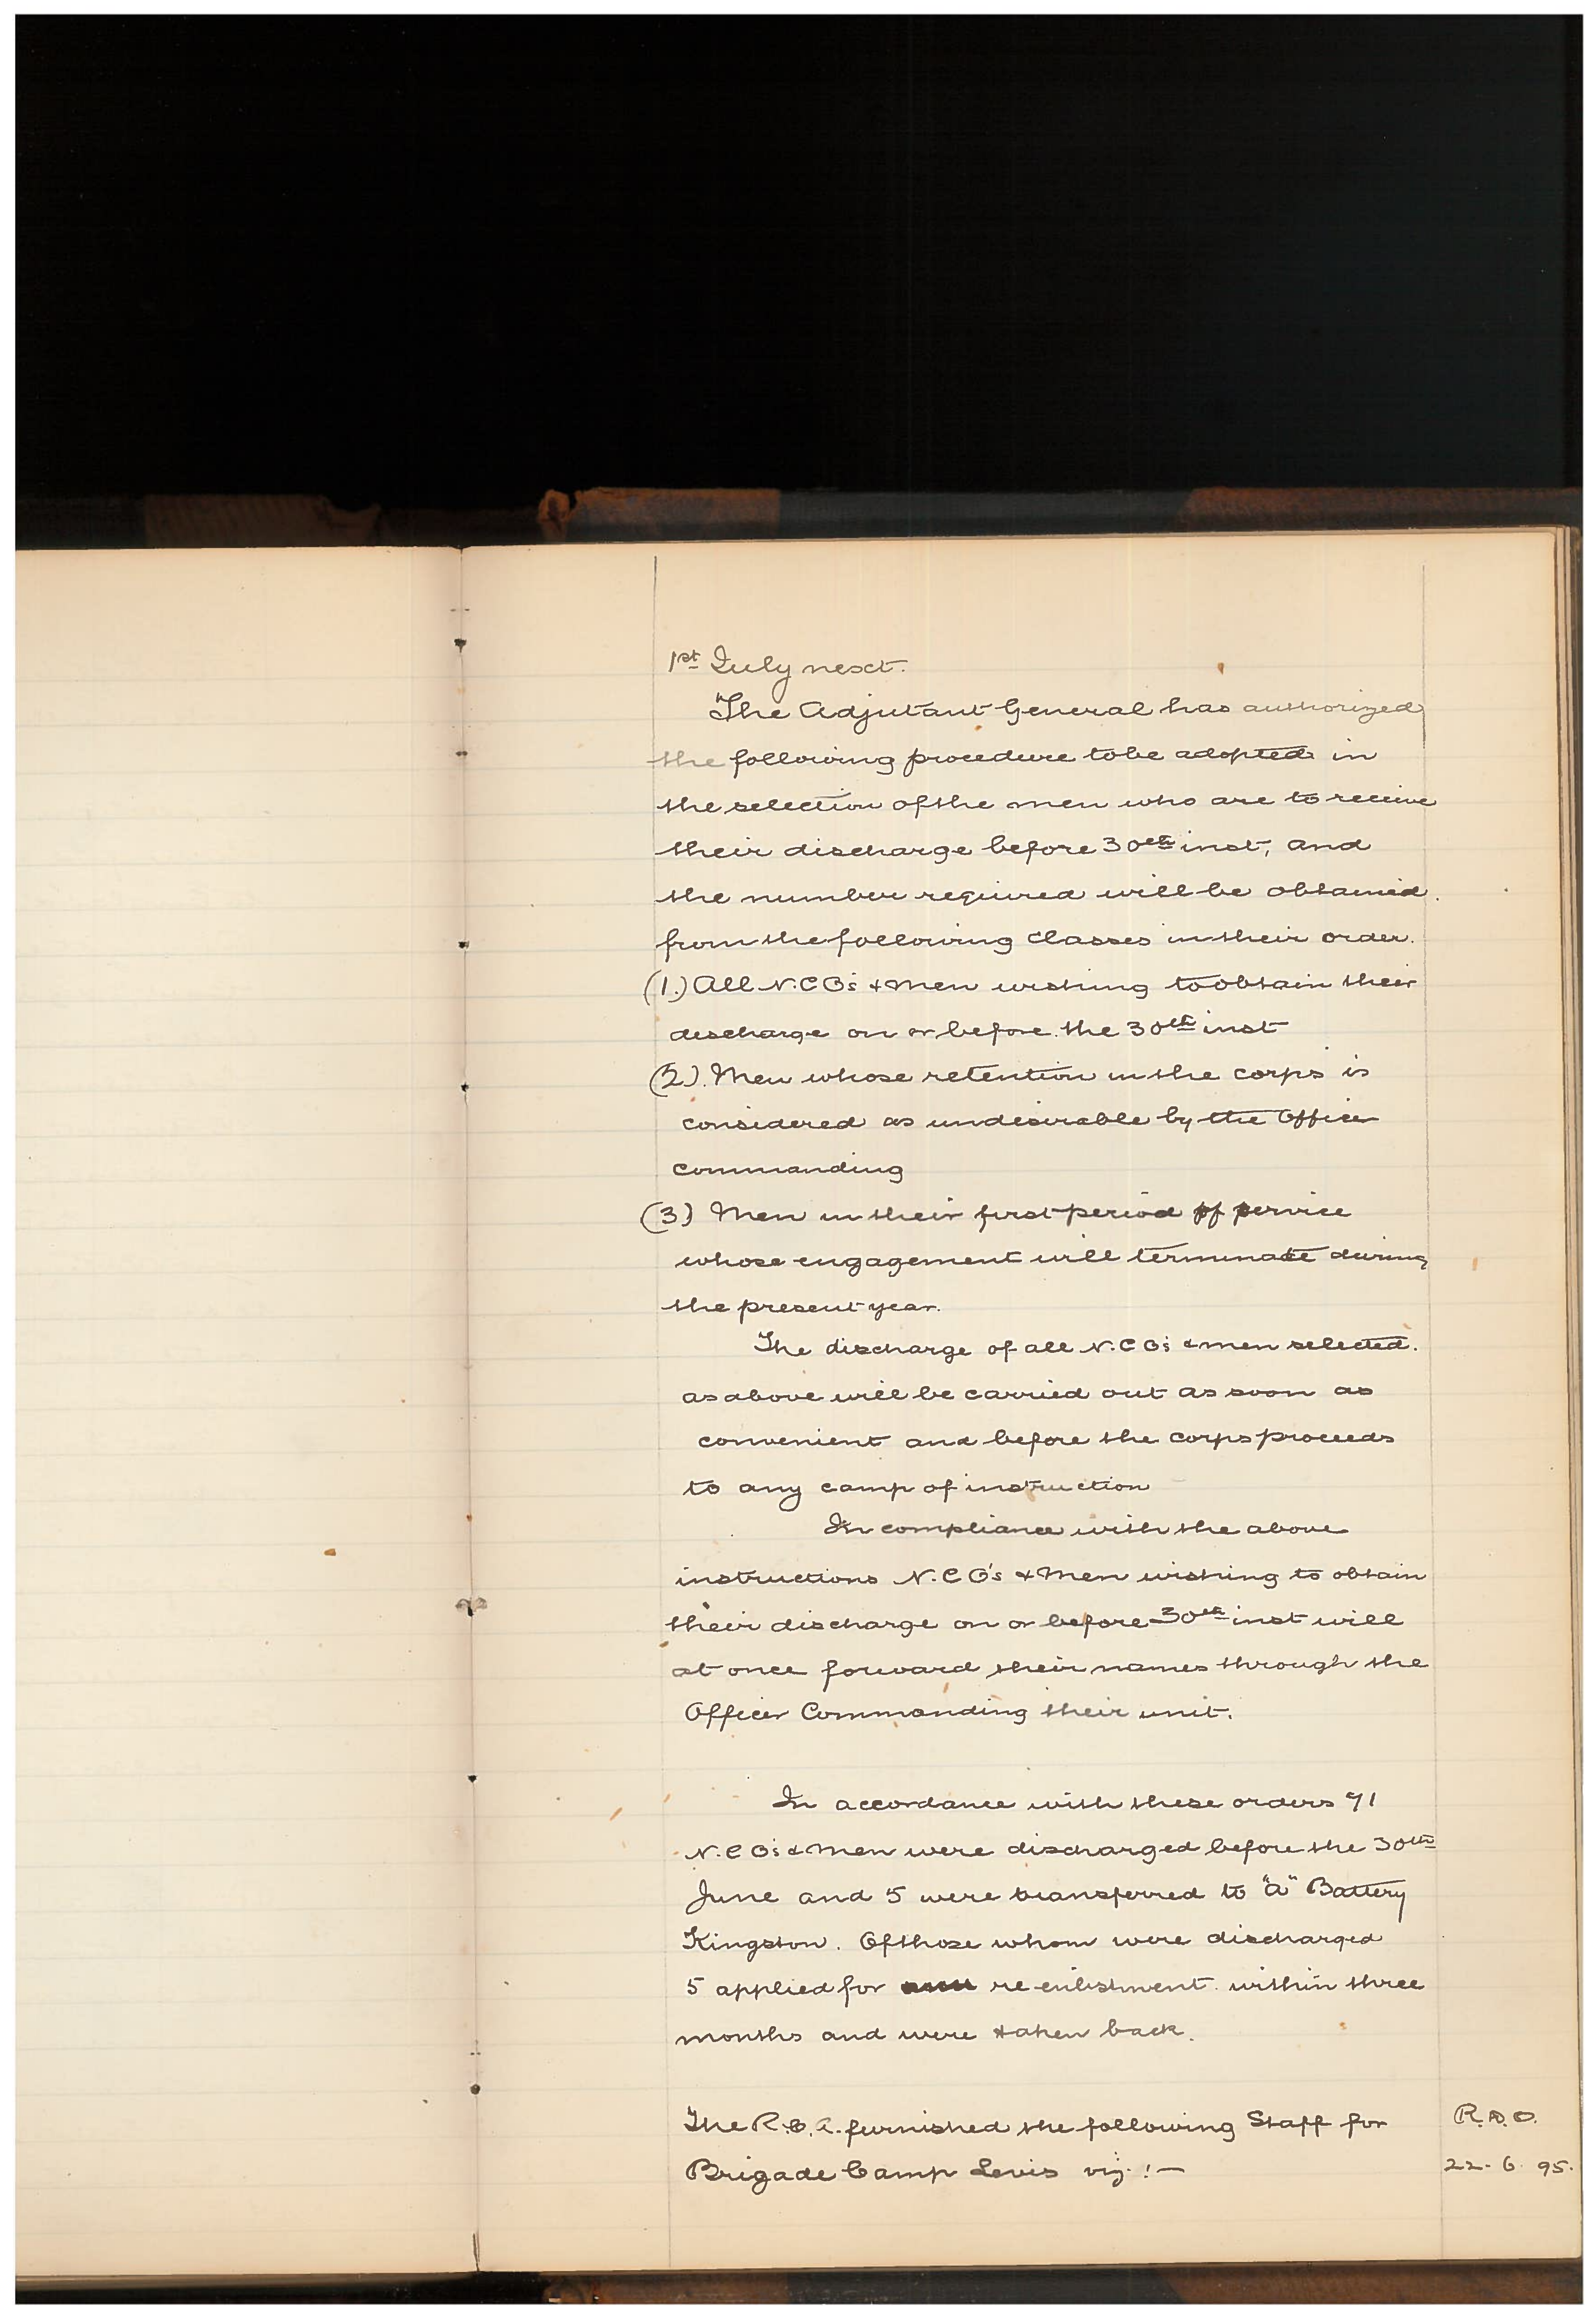 1st July next.
"The Adjutant General has authorized
the following procedure to be adopted in
the selection of the men who are to receive
their discharge before 30th inst, and
the number required will be obtained
from the following classes in their order.
(1.) All N.C.O's & Men wishing to obtain their
discharge on or before the 30th inst
(2). Men whose retention in the corps is
considered as undesirable by the Officer
commanding
(3) Men in their first period of service
whose engagement will terminate during
the present year.
The discharge of all N.C.O's & men selected.
as above will be carried out as soon as
convenient and before the corps proceeds
to any camp of instruction
In compliance with the above
instructions N.C.O's & Men wishing to obtain
their discharge on or before 30th inst will
at once forward their names through the
Officer Commanding their unit.
In accordance with these orders 71
N.C.O's & Men were discharged before the 30th
June and 5 were transferred to "A" Battery
Kingston. Of those whom were discharged
5 applied for re-enlistment within three
months and were taken back.
The R.C.A. furnished the following Staff for
Brigade Camp Levis viz:—
R.A.O.
22-6-95.